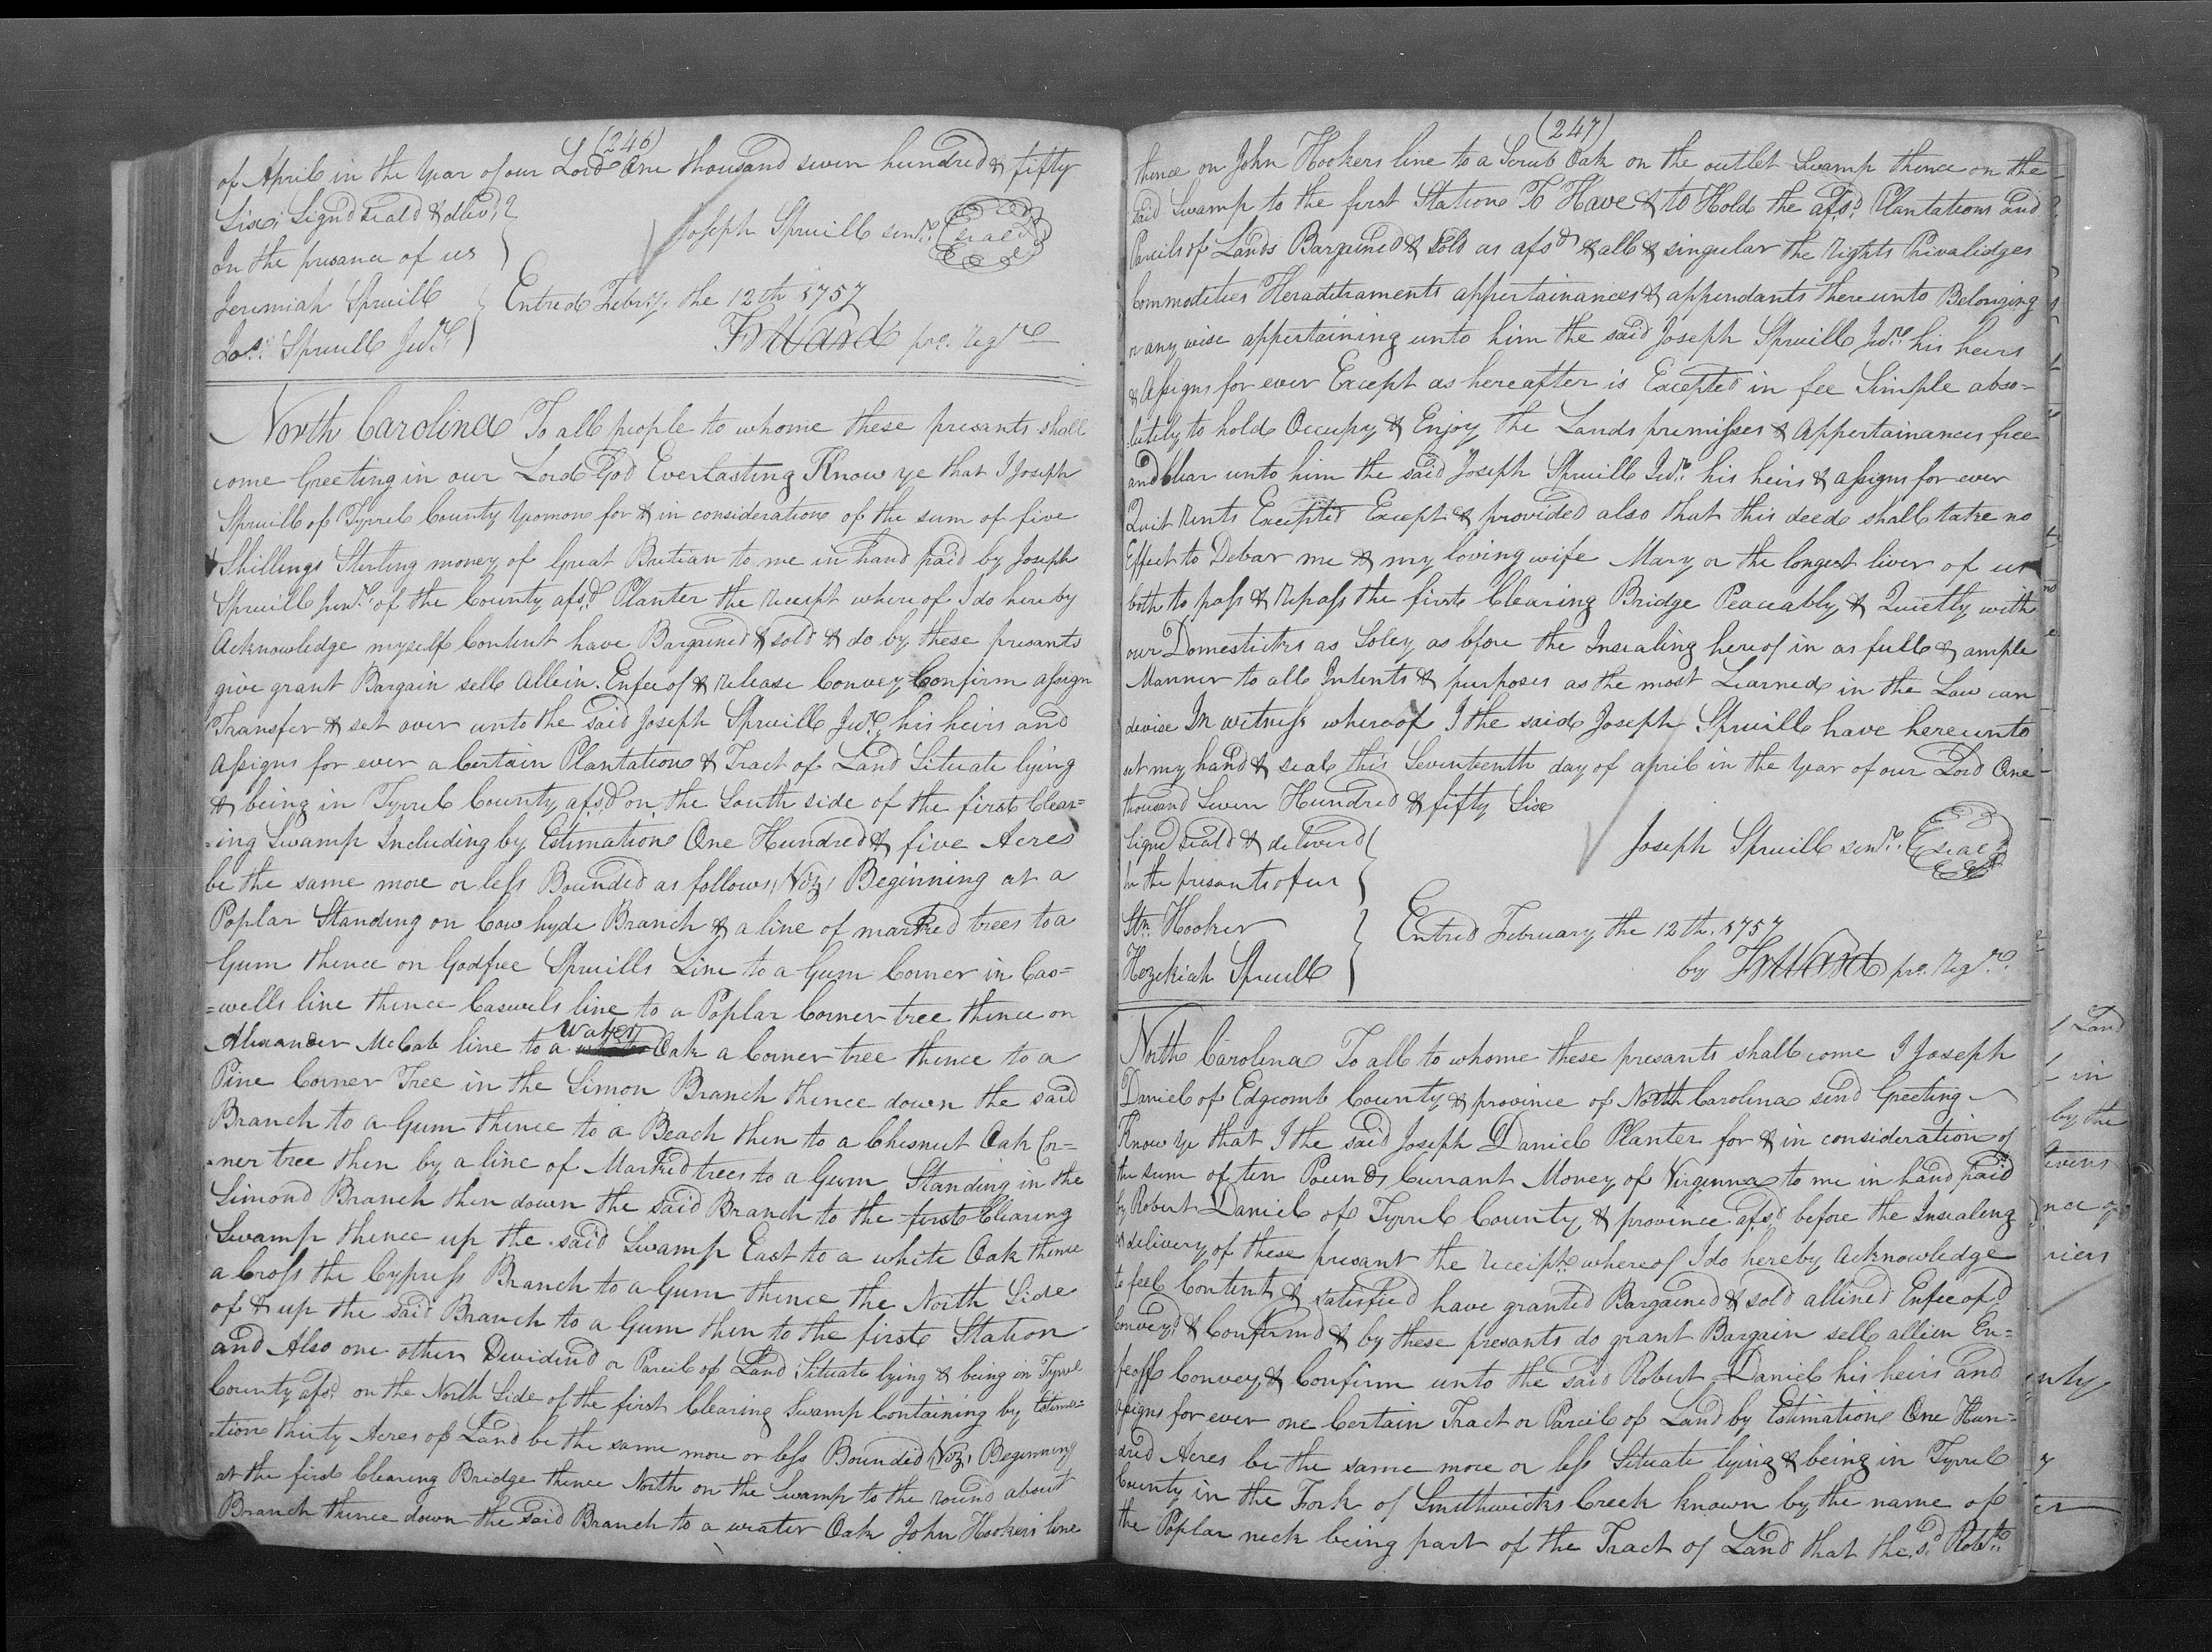 (246)
of April in the Year of our Lord One thousand seven hundred & fifty
Six; Signd seald & dlivd;
In the presance of us
Joseph Spruill senr. Seal
Jeremiah Spruill
Jos: Spruill Junr.
Entred Febry. the 12th 1757
Fr Ward pro. Regr.
North Carolina To all people to whome these presants shall
come Greeting in our Lord God Everlasting Know ye that I Joseph
Spruill of Tyrrel County Yeomon for & in consideration of the sum of five
Shillings Sterling money of Great Britian to me in hand paid by Joseph
Spruill Junr. of the County afsd. Planter the receipt whereof I do hereby
Acknowledge myself Content have Bargained & sold & do by these presants
give grant Bargain sell Allein. Enfeof & release Convey Confirm assign
Transfer & set over unto the said Joseph Spruill Junr. his heirs and
Assigns for ever a Certain Plantation & Tract of Land Situate lying
& being in Tyrrel County afsd. on the South side of the first Clear=
=ing Swamp Including by Estimation One Hundred & five Acres
be the same more or less Bounded as follows, Viz, Beginning at a
Poplar Standing on Cow hyde Branch & a line of marked trees to a
Gum thence on Godfree Spruills Line to a Gum Corner in Cas=
=wells line thence Caswels line to a Poplar Corner tree thence on
Alexander McCab line to a Water Oak a Corner tree thence to a
Pine Corner Tree in the Simon Branch thence down the said
Branch to a Gum thence to a Beach then to a Chesnut Oak Cor=
=ner tree then by a line of Marked trees to a Gum Standing in the
Simond Branch then down the said Branch to the first Clearing
Swamp thence up the said Swamp East to a white Oak thence
a Cross the Cypress Branch to a Gum thence the North Side
of & up the said Branch to a Gum then to the first Station
and Also one other Dividend or Parcil of Land Situate lying & being in Tyrrel
County afsd. on the North Side of the first Clearing Swamp Containing by Estima=
=tion thirty Acres of Land be the same more or less Bounded Viz, Beginning
at the first Clearing Bridge thence North on the Swamp to the round about
Branch thence down the said Branch to a water Oak John Hookers line
(247)
thence on John Hookers line to a Scrub Oak on the outlet Swamp thence on the
said Swamp to the first Station To Have & to Hold the afsd. Plantations and
Parcils of Lands Bargained & sold as afsd & all & singular the Rights Privalidges
Commodities Heraditaments appertainances & appendants thereunto Belonging
or any wise appertaining unto him the said Joseph Spruill Junr. his heirs
& Assigns for ever Except as hereafter is Excepted in fee Simple abso=
lutely to hold Occupy & Enjoy the Lands premisses & Appertainances free
and Clear unto him the said Joseph Spruill Junr. his heirs & assigns for ever
Quit rents Excepted Except & provided also that this deed shall take no
Effect to Debar me & my loving wife Mary or the longest liver of us
both to pass & repass the first Clearing Bridge Peaceably & Quietly with
our Domesticks as Soley as bfore the Insealing hereof in as full & ample
Manner to all Intents & purposes as the most Learned in the Law can
devise In witness whereof I the said Joseph Spruill have hereunto
set my hand & seal this Seventeenth day of april in the Year of our Lord One
thousand Seven Hundred & fifty Six
Signd seald & deliverd
In the presants of us
Joseph Spruill senr. Seal
Stn. Hooker
Hezekiah Spruill
Entred February the 12th. 1757
by Fr Ward pro. Regr.
North Carolina To all to whome these presants shall come I Joseph
Daniel of Edgcomb County & province of North Carolina send Greeting
Know ye that I the said Joseph Daniel Planter for & in consideration of
the sum of ten Pounds Currant Money of Virginna to me in hand paid
by Robert Daniel of Tyrrel County & province afsd before the Insealing
& delivery of these presant the receipt whereof I do hereby Acknowledge
to feel Content & satisfied have granted Bargained & sold allined Enfeofd
Conveyd. & Confirmd & by these presants do grant Bargain sell allien En=
feoff Convey & Confirm unto the said Robert Daniel his heirs and
assigns for ever one Certain Tract or Parcil of Land by Estimation One Hun=
dred Acres be the same more or less Situate lying & being in Tyrrel
County in the Fork of Smithwicks Creek known by the name of
the Poplar neck being part of the Tract of Land that the sd. Robt.
Land
in
by the